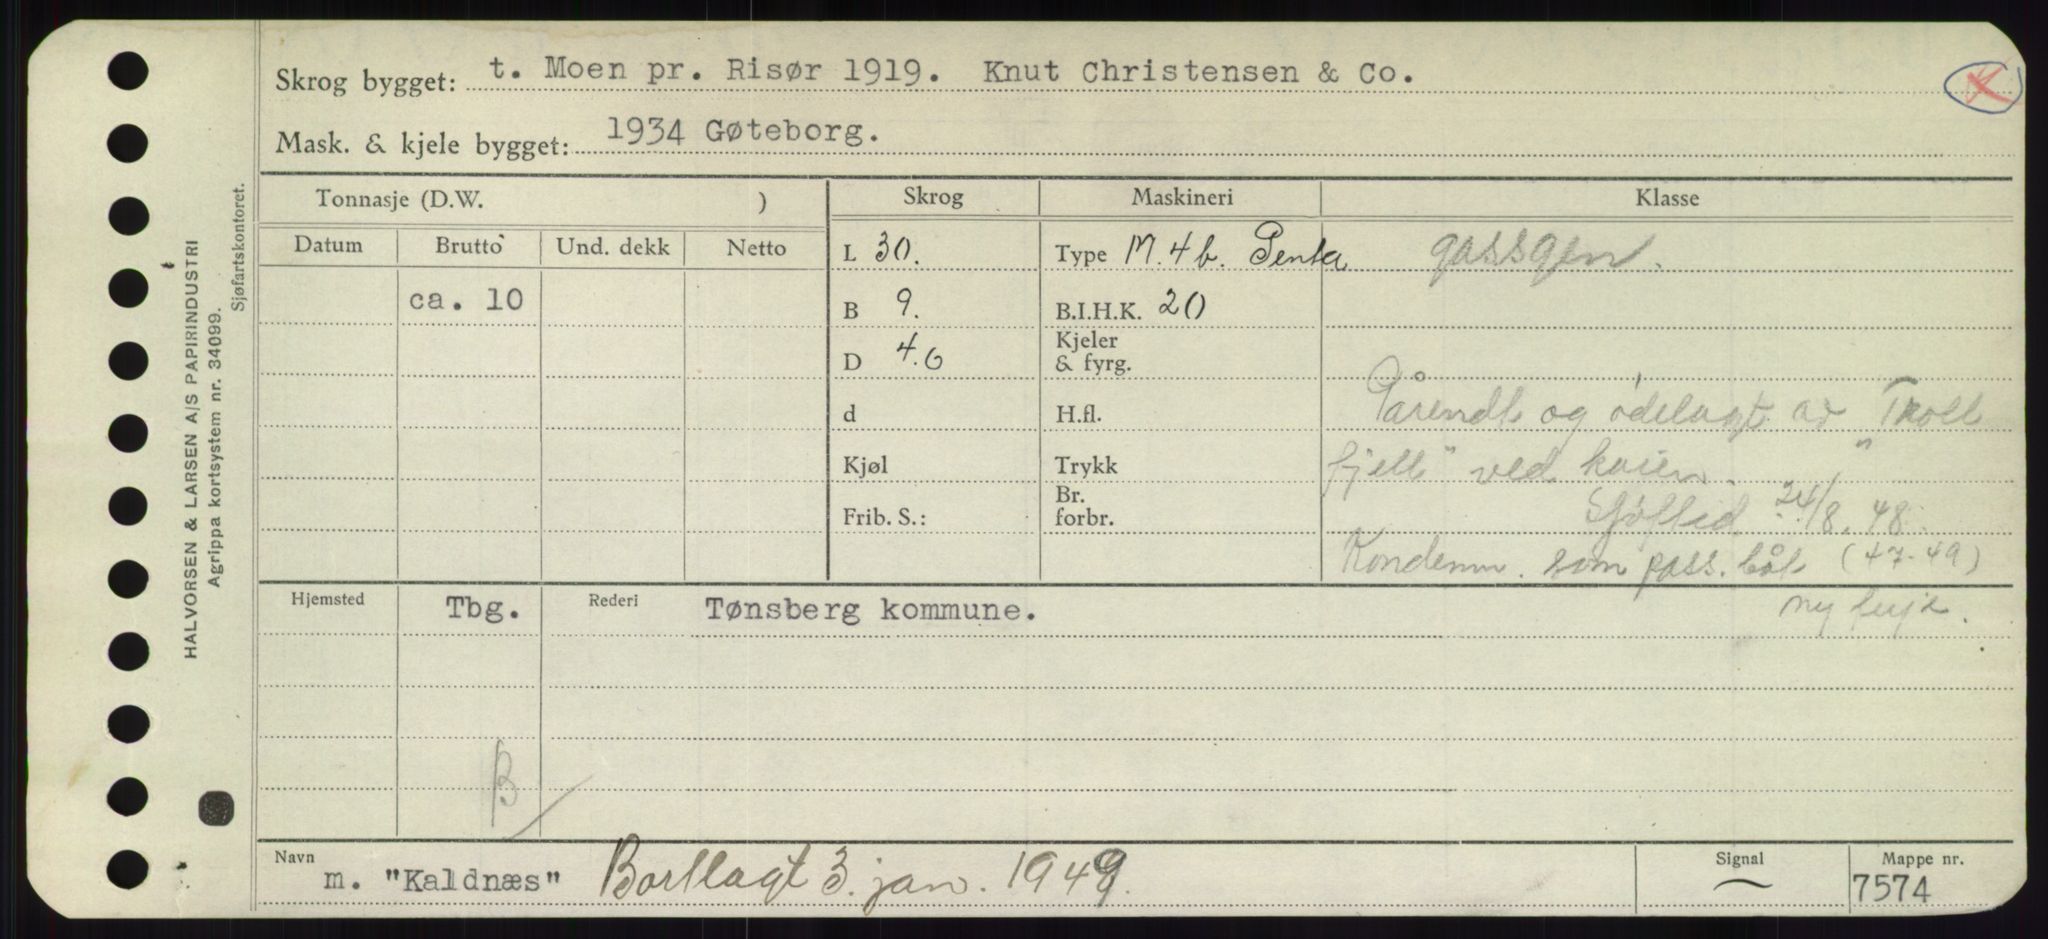 Skrog bygget: t. Moen pr. Risør 1919. Knut Christensen & Co.
Mask. & kjele bygget: 1934 Gøteborg.
HALVORSEN & LARSEN A/S PAPIRINDUSTRI
Agrippa kortsystem nr. 34099.
Sjøfartskontoret.
Tonnasje (D.W. ) Skrog Maskineri Klasse
Datum Brutto Und. dekk Netto L 30. Type M. 4 b. Penta gassgen.
ca. 10 B 9. B.I.H.K. 20
D 4.6 Kjeler & fyrg.
d H.fl. Pårendt og ødelagt av "Troll
Kjøl Trykk fjell" ved kaien.
Frib. S.: Br. forbr. Sjøftid. 24/8. 48.
Kondemn. som pass. båt (47-49)
Hjemsted Tbg. Rederi Tønsberg kommune. ny
B
Navn m. "Kaldnæs" Bortlagt 3. jan. 1949. Signal Mappe nr.
7574